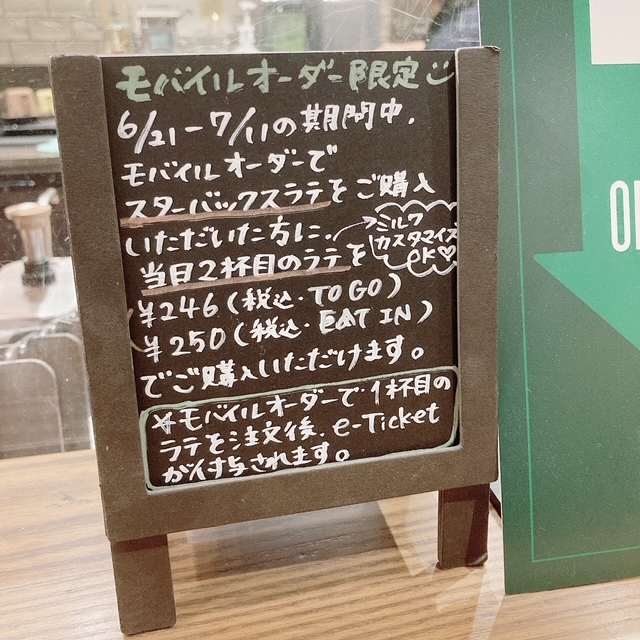 モバイルオーダー限定
6/21-7/11の期間中、
モバイルオーダーで
スターバックスラテをご購入
いただいた方に、
ミルク
カスタマイズ
OK♡
当日2杯目のラテを
¥246(税込・TO GO)
¥250(税込・EAT IN)
でご購入いただけます。
※モバイルオーダーで1杯目の
ラテを注文後、e-Ticket
が付与されます。